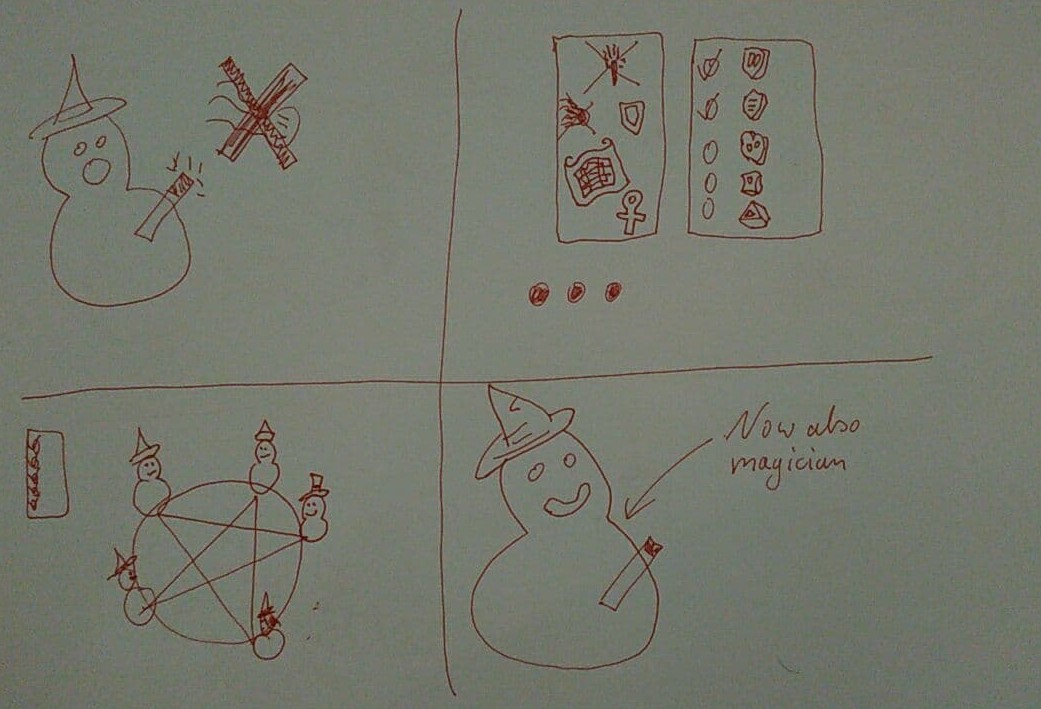 Now also
magician